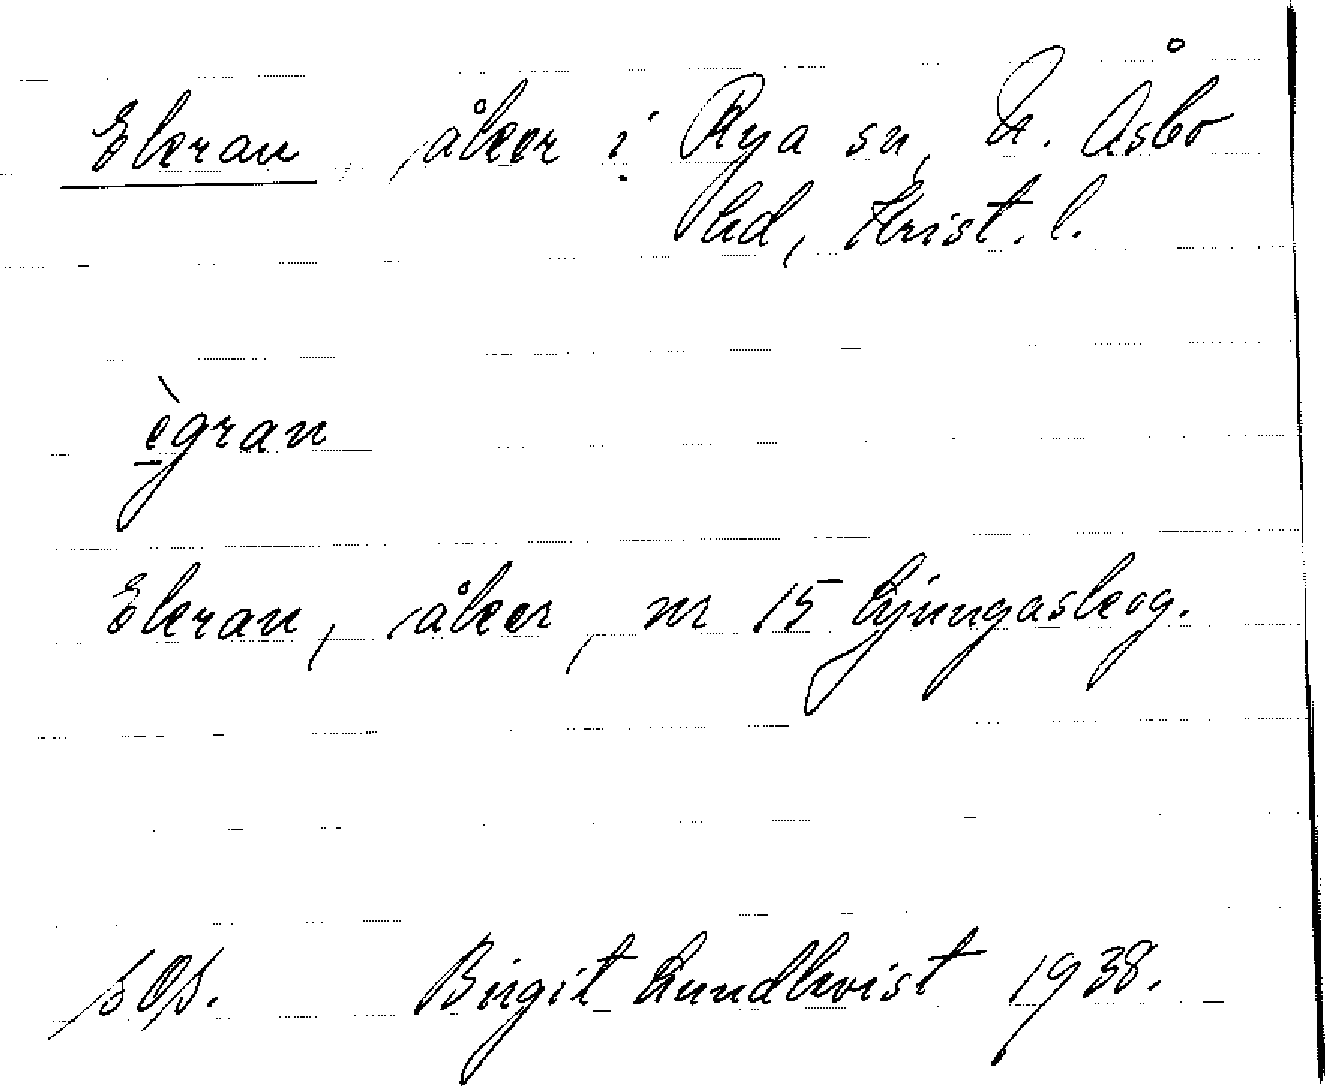 Ekran, åker i Rya sn, N. Åsbo
hd, Krist. l.
ègran
Ekran, åker, nr 15 Ljungaskog.
sOs. Birgit Lundkvist 1938.